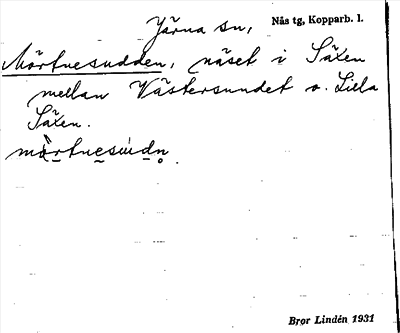 Järna sn, Nås tg, Kopparb. l.
Mörtnesudden, näset i Säxen
mellan Västersundet o. Lilla
Säxen.
mò̱rtnesùdn̥
Bror Lindén 1931